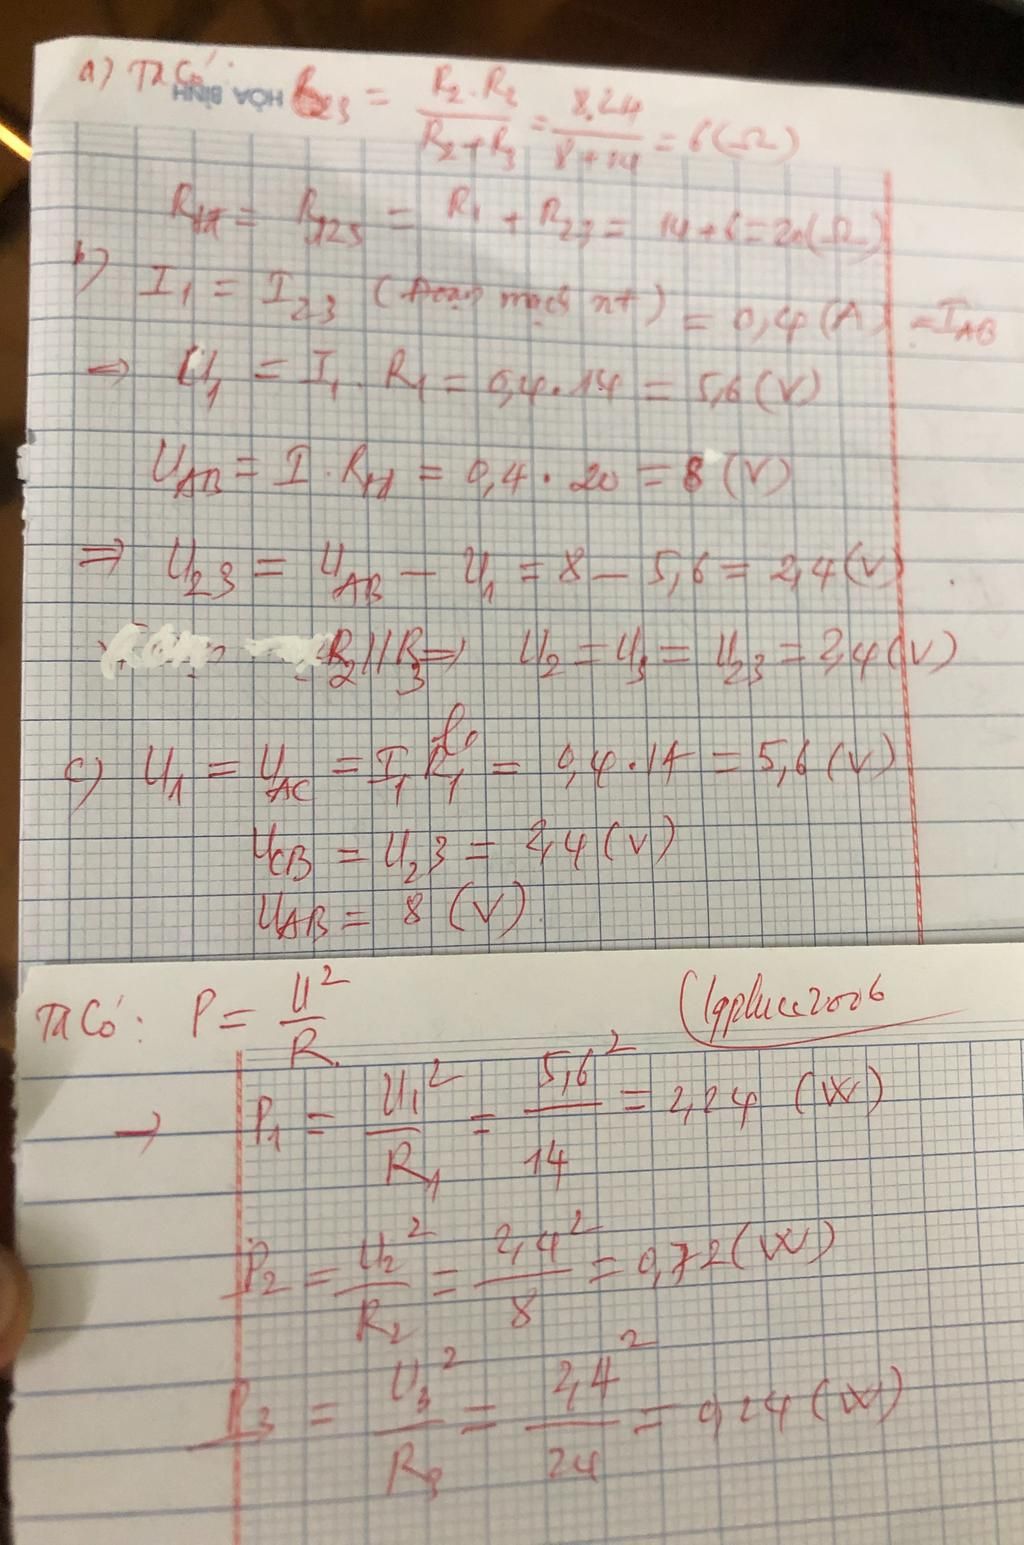 a) Ta có: R23 = R2.R2 / R2+R3 = 8.24 / 8+24 = 6(Ω)
HÒA BÌNH
Rtđ = R123 = R1 + R23 = 14+6=20(Ω)
b) I1 = I23 (đoạn mạch nt) = 0,4(A) = IAB
→ U1 = I1 . R1 = 0,4.14 = 5,6(V)
UAB = I . Rtđ = 0,4 . 20 = 8 (V)
⇒ U23 = UAB - U1 = 8 - 5,6 = 2,4(V)
R2//R3 ⇒ U2 = U3 = U23 = 2,4(V)
c) U1 = UAC = I1 R1 = 0,4.14 = 5,6(V)
UCB = U23 = 2,4(V)
UAB = 8 (V)
Ta Có: P = U² / R
→ P1 = U1² / R1 = 5,6² / 14 = 2,24 (W)
P2 = U2² / R2 = 2,4² / 8 = 0,72(W)
P3 = U3² / R3 = 2,4² / 24 = 0,24(W)